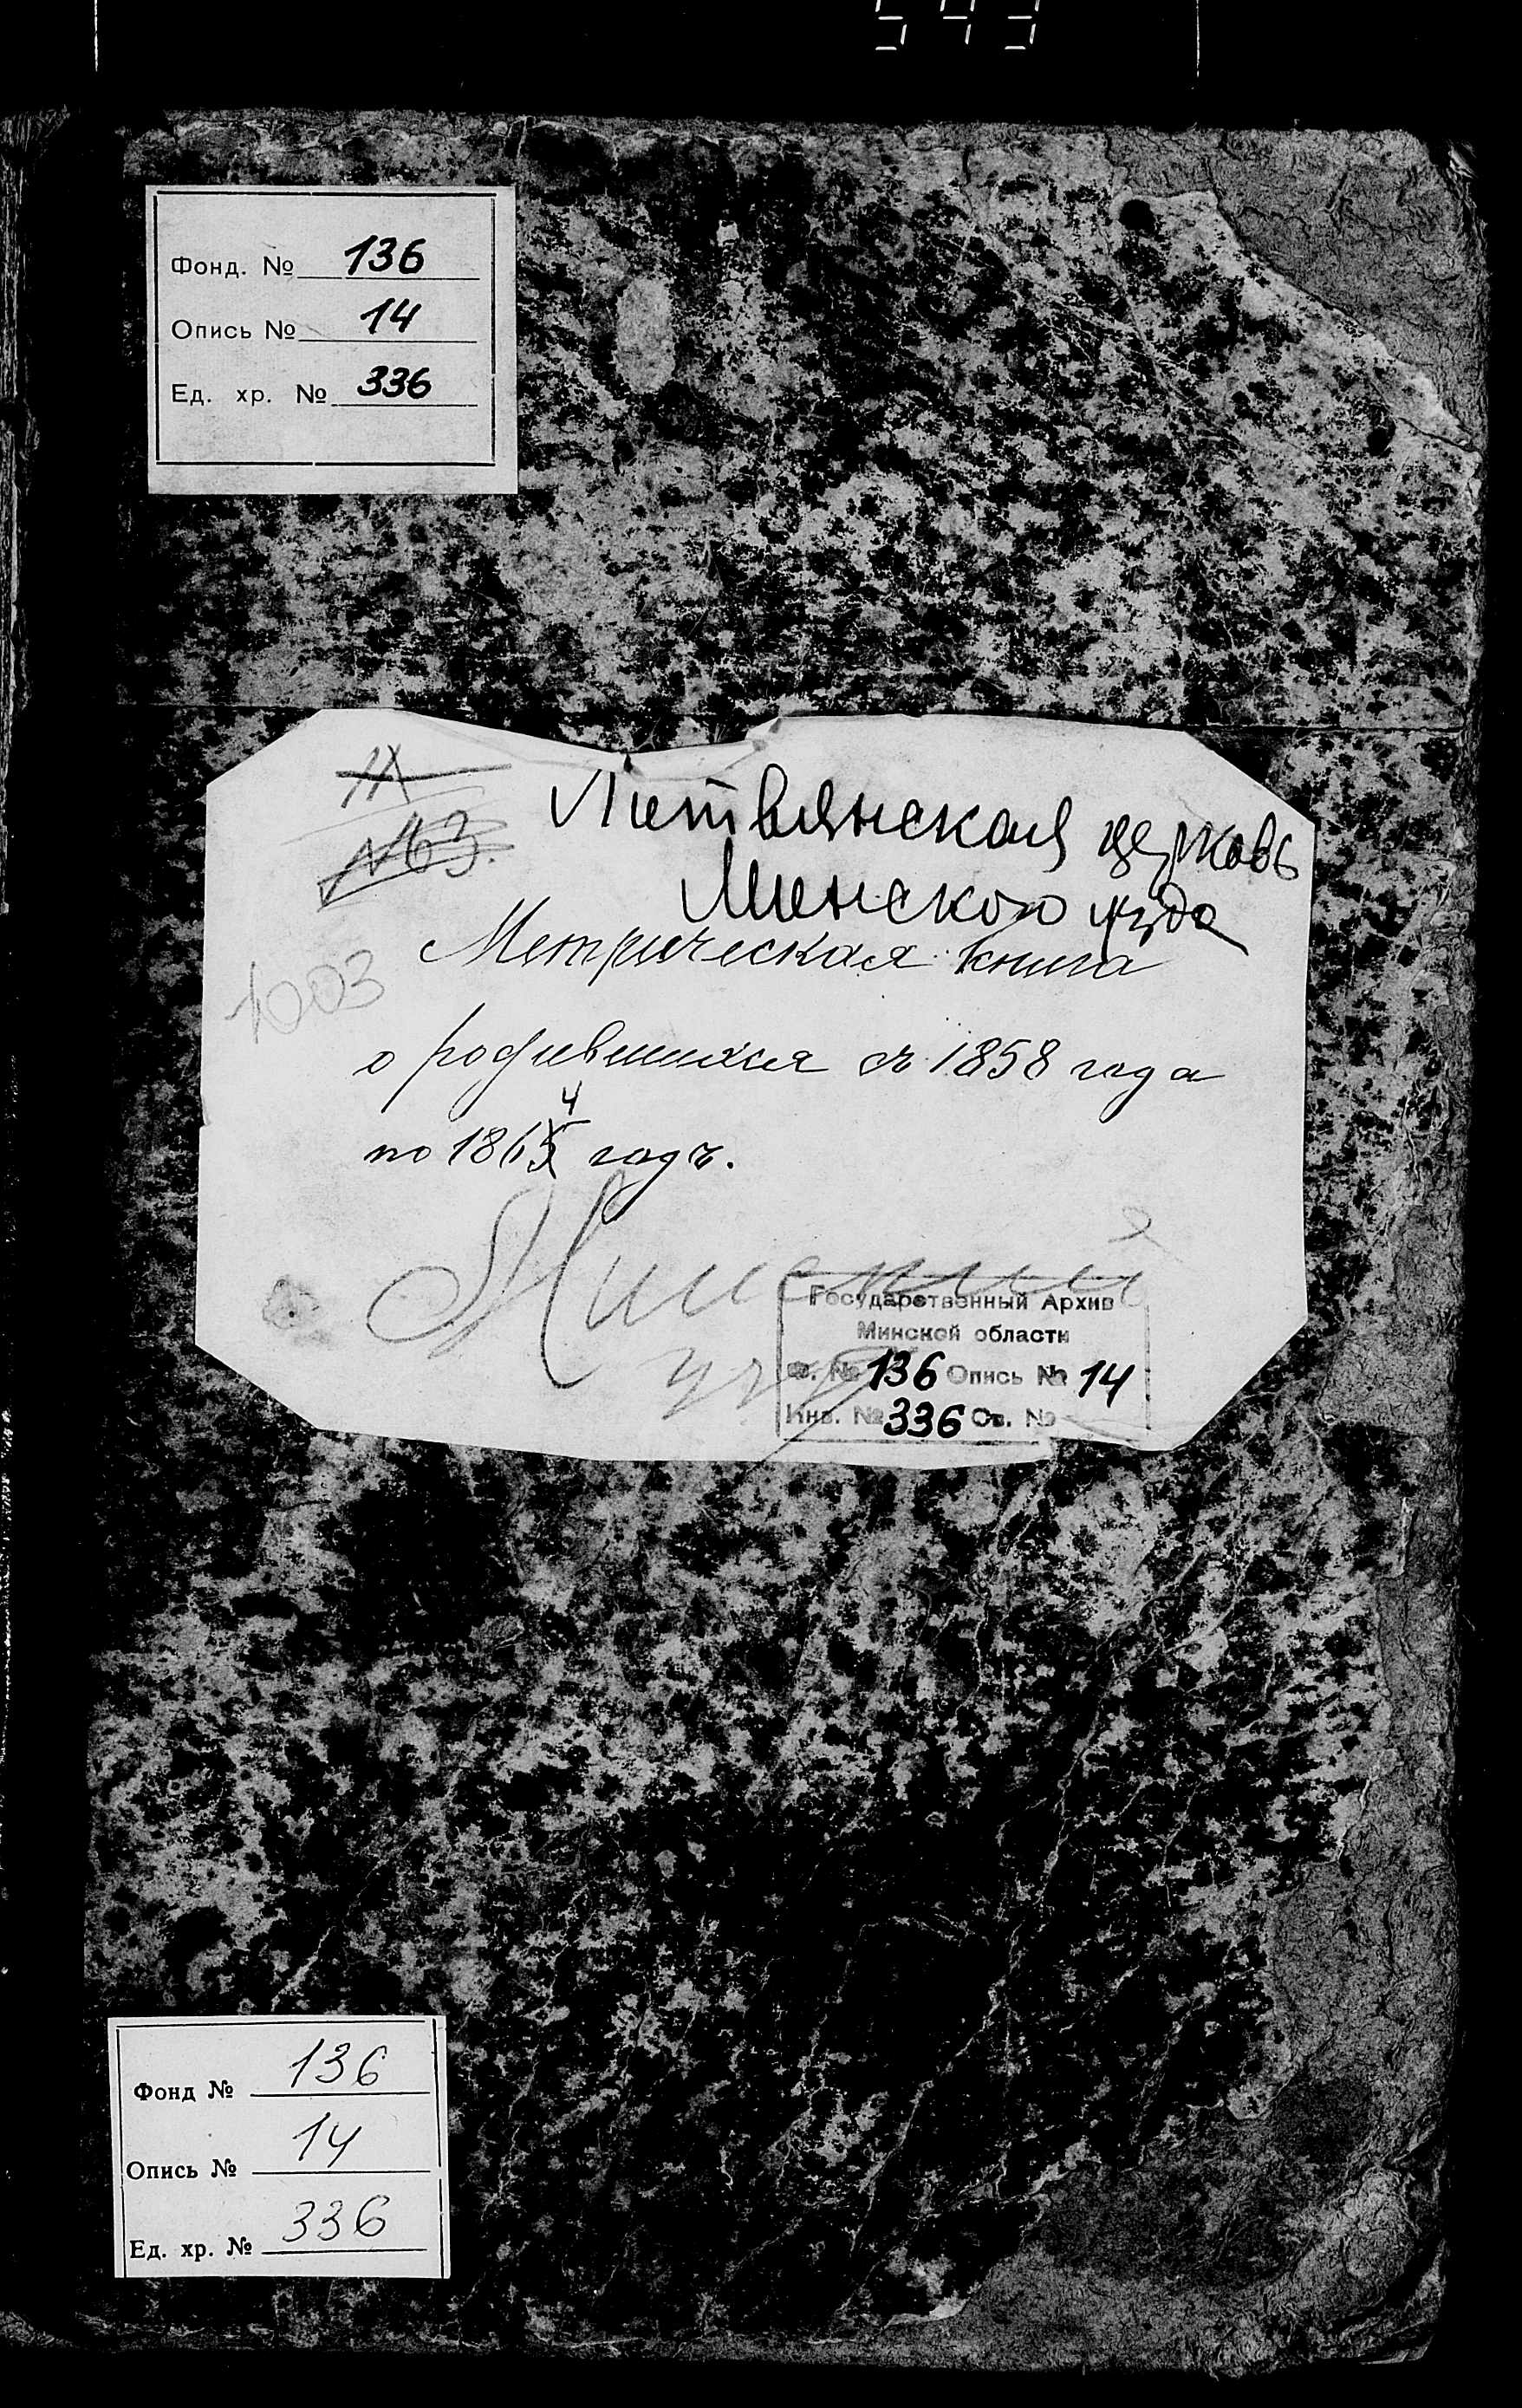 543
Фонд. № 136
Опись № 14
Ед. хр. № 336
IX
№63.
Литвянская церковь
Минского уезда
Метрическая книга
1003
о родившихся съ 1858 года
4
по 1865 годъ.
Государственный Архив
Минской области
Ф. № 136 Опись № 14
Инв. № 336 Св. №
Фонд № 136
Опись № 14
Ед. хр. № 336